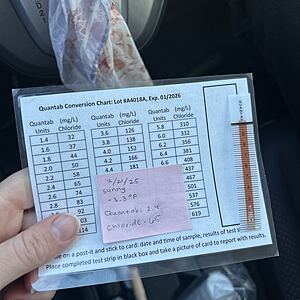 Quantab Conversion Chart: Lot #A4018A, Exp. 01/2026
Quantab Units (mg/L) Chloride Quantab Units (mg/L) Chloride Quantab Units (mg/L) Chloride
1.4 32 3.6 126 5.8 310
1.6 37 3.8 138 6.0 332
1.8 44 4.0 152 6.2 356
2.0 50 4.2 166 6.4 381
2.2 58 4.4 408
2.4 65 437
2.6 74 467
2.8 83 501
92 537
03 576
114 619
2/21/25
sunny
-3.3°F
Quantab: 2.4
Chloride: 65
on a post-it and stick to card: date and time of sample, results of test s
Place completed test strip in black box and take a picture of card to report with results.